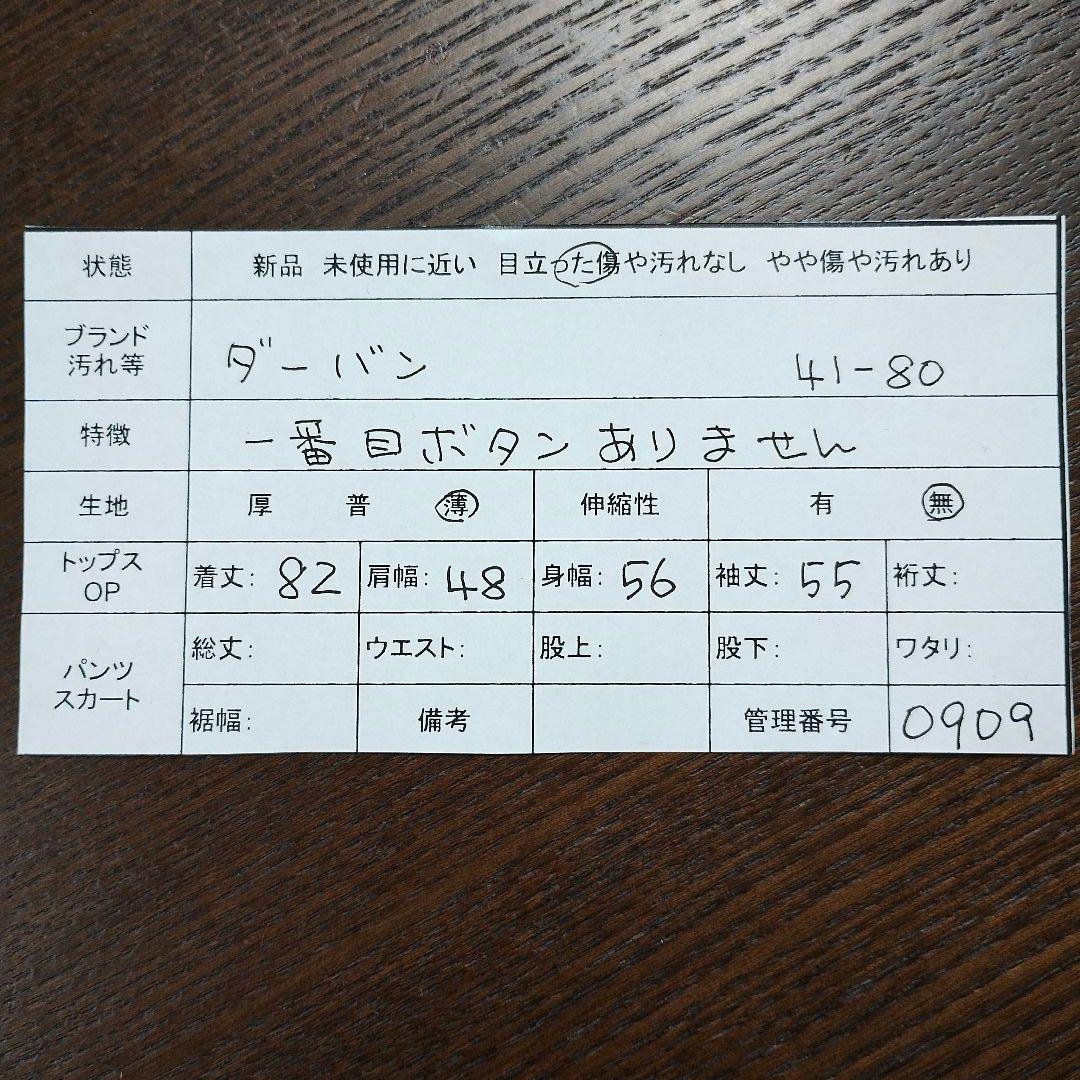 状態 新品 未使用に近い 目立った傷や汚れなし やや傷や汚れあり
ブランド
汚れ等 ダーバン 41-80
特徴 一番目ボタンありません
生地 厚 普 薄 伸縮性 有 無
トップス
OP 着丈: 82 肩幅: 48 身幅: 56 袖丈: 55 裄丈:
パンツ
スカート 総丈: ウエスト: 股上: 股下: ワタリ:
裾幅: 備考 管理番号 0909